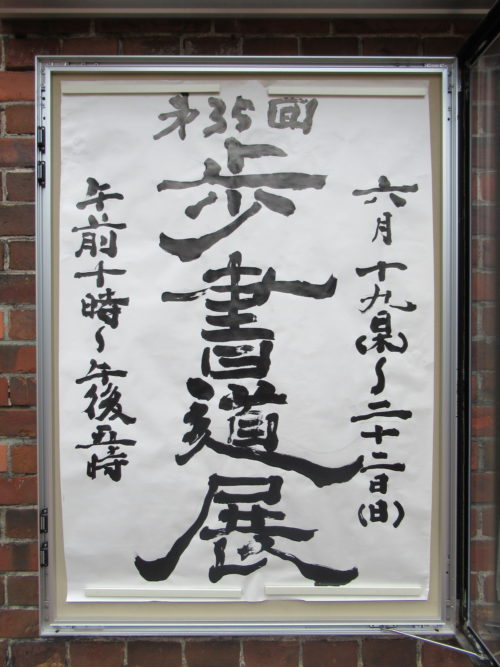 第35回
歩書道展
六月十九日(木)〜二十二日(日)
午前十時〜午後五時